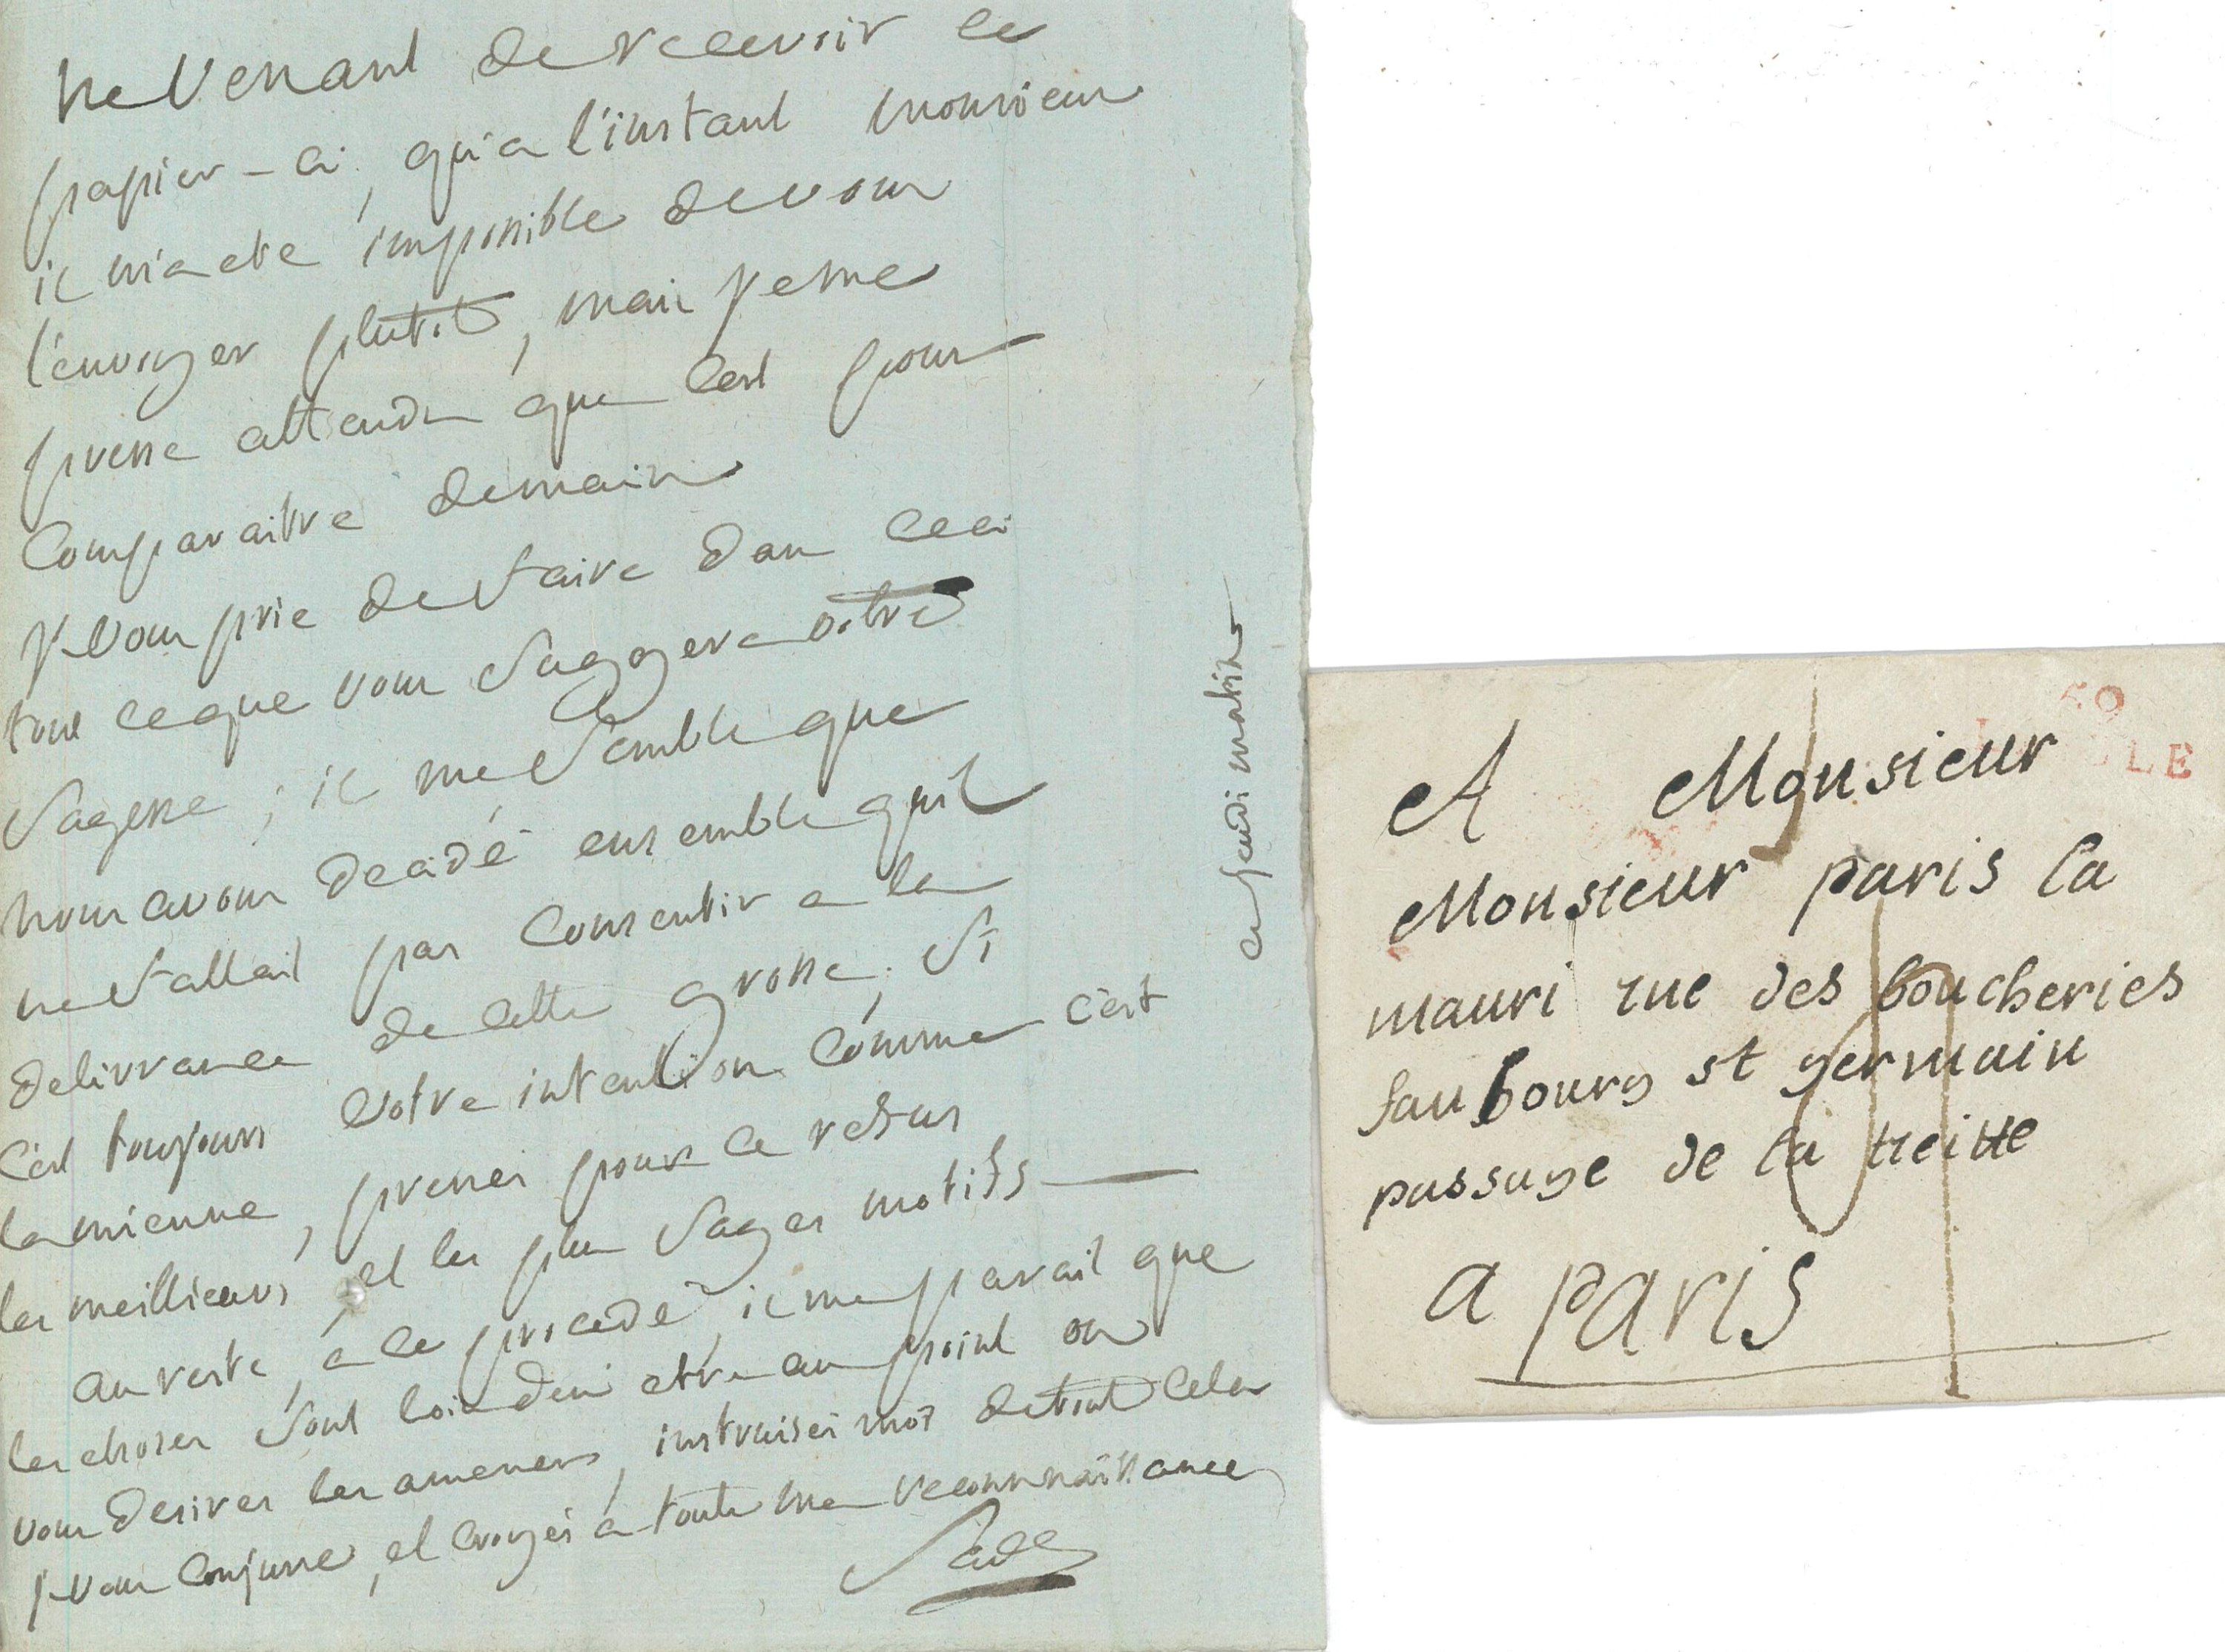 ne venant de recevoir ce
papier-ci, qu'a l'instant monsieur
il m'a ete impossible de vous
l'envoyer plutot, mais je me
presse attendu que c'est pour
comparaitre demain
je vous prie de faire dans ceci
tout ce que vous suggere votre
sagesse ; il me semble que
nous avons decidé ensemble quil
ne fallait pas consentir a la
delivrance de cette grosse, si
c'est toujours votre intention comme c'est
la mienne, prenes pour ce refus
les meillieurs, et les plus sages motifs —
au reste, a ce procedé, il me parait que
les choses sont loin d'en etre au point ou
vous desires les amener, instruises moi de tout cela
je vous conjure, et croyes a toute ma reconnaissance
Sade
ce jeudi matin
59
LE
A Monsieur
Monsieur paris la
mauri rue des boucheries
faubourg st germain
passage de la treitte
a paris